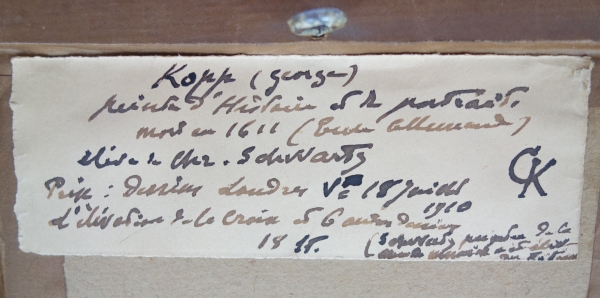 Kopp (george)
peintre d'Histoire et de portraits.
mort en 1611 (Ecole allemande)
élève de Chr. Schwartz
CK
Prix : dessins Londres Vte 18 juillet
1910
l'élévation de la Croix et 6 autres dessins
18 sh.
(Schwartz peintre de la